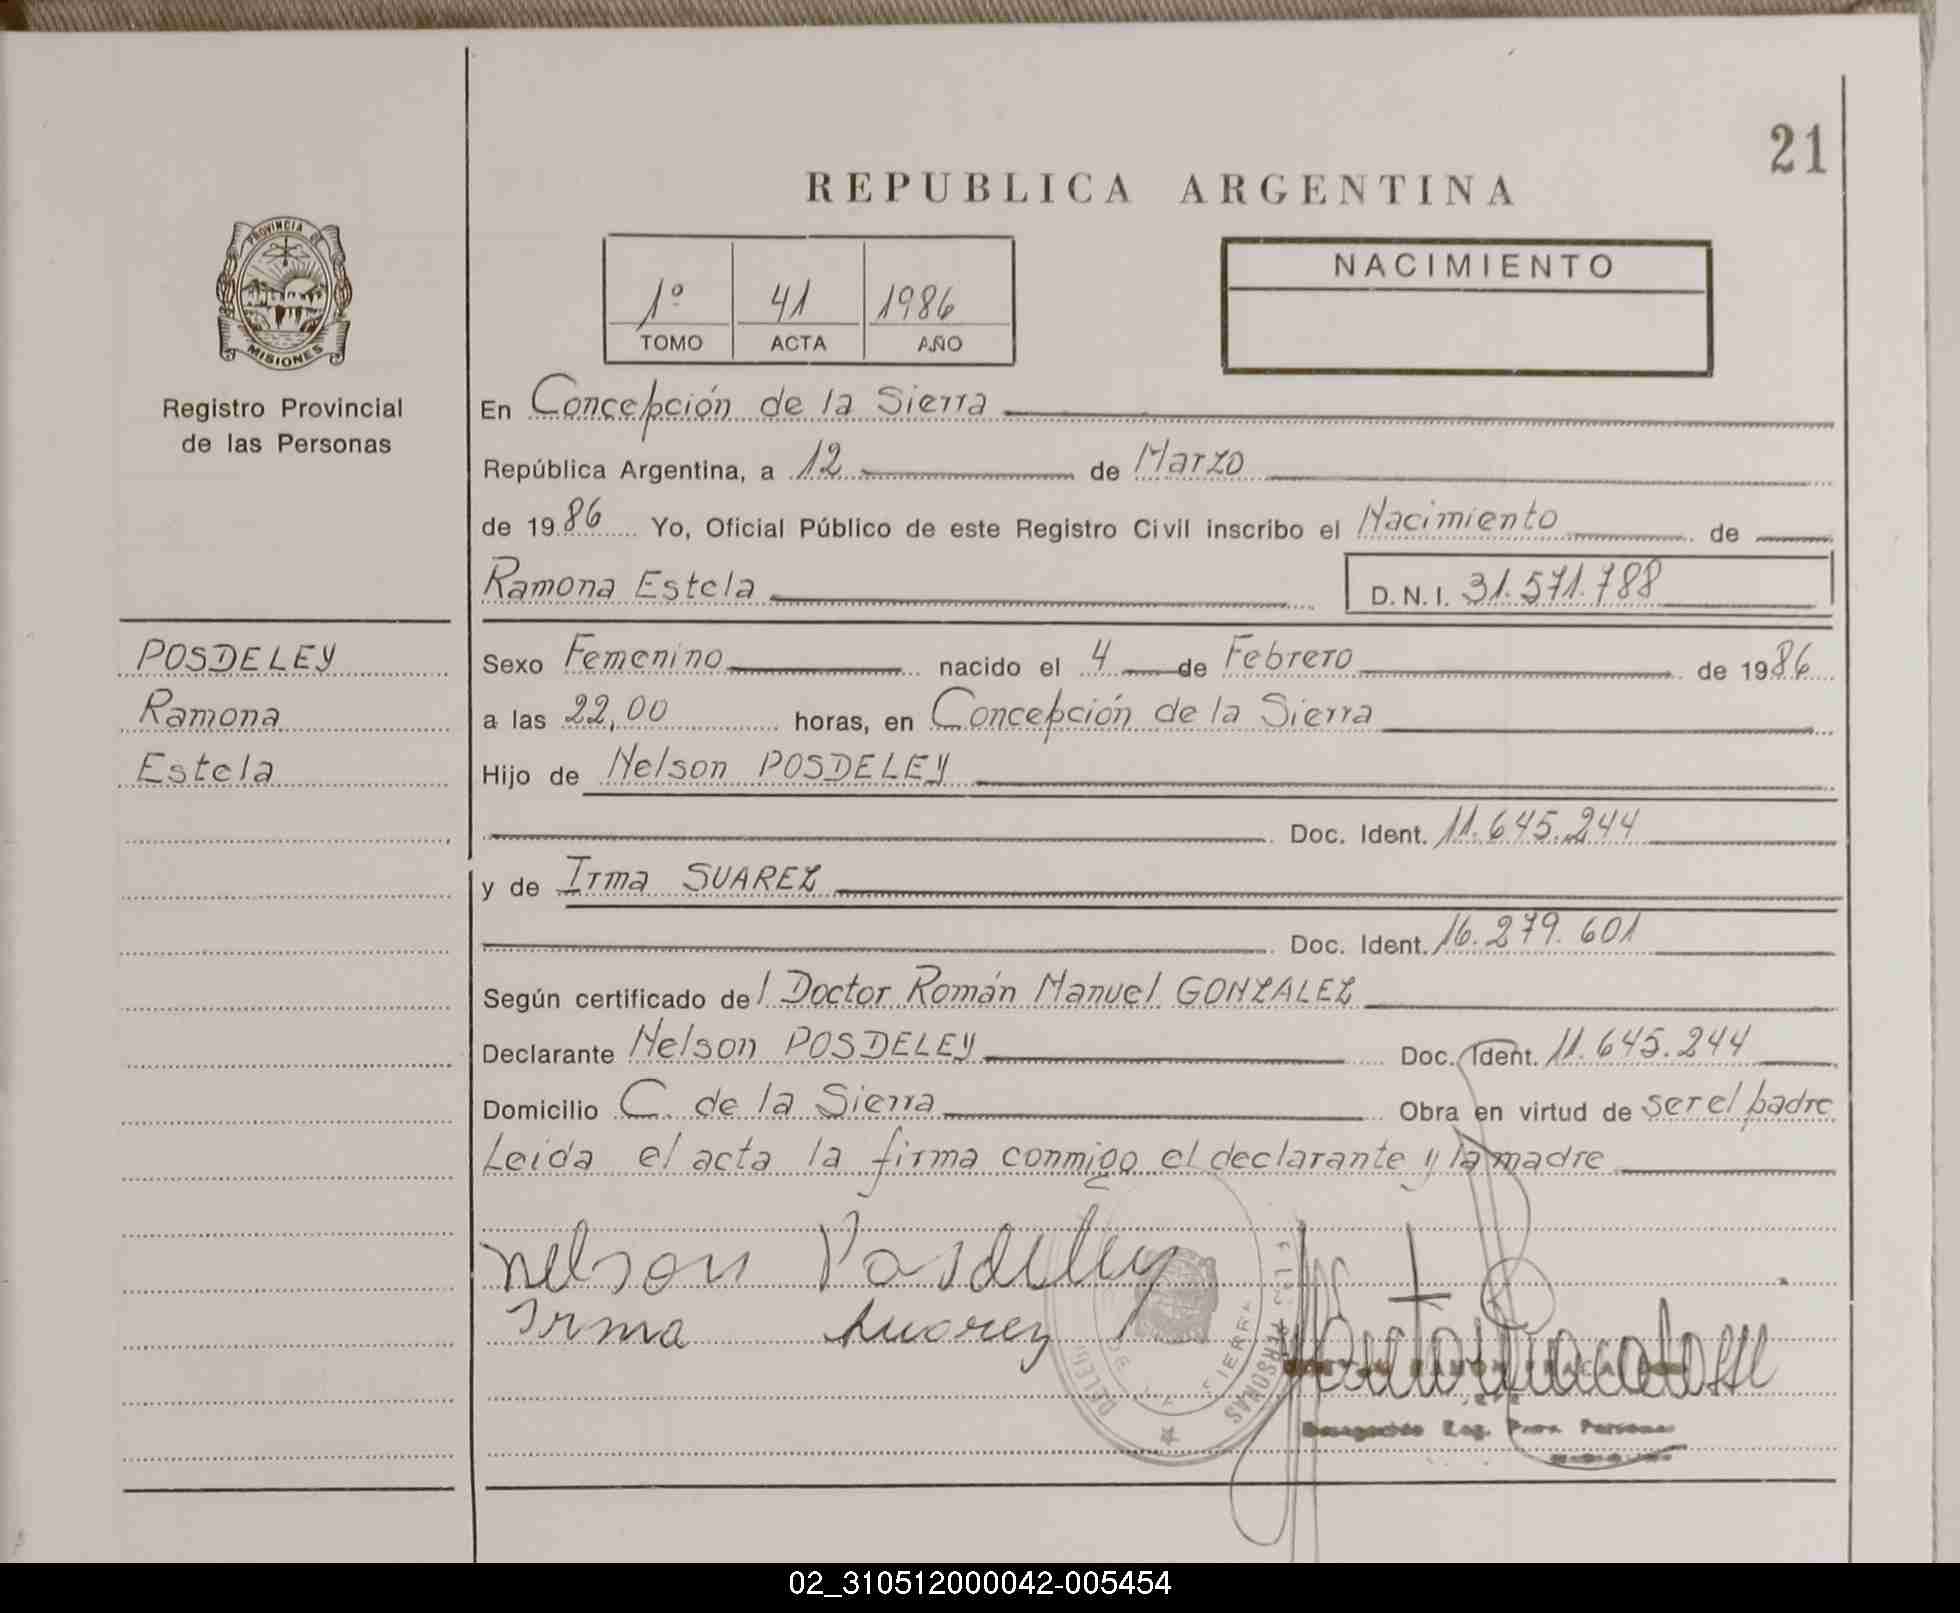 21
REPUBLICA ARGENTINA
PROVINCIA DE
MISIONES
Registro Provincial
de las Personas
1º 41 1986
TOMO ACTA AÑO
NACIMIENTO
En Concepción de la Sierra
República Argentina, a 12 de Marzo
de 1986 Yo, Oficial Público de este Registro Civil inscribo el Nacimiento de
Ramona Estela D.N.I. 31.571.788
POSDELEY
Ramona
Estela
Sexo Femenino nacido el 4 de Febrero de 1986
a las 22,00 horas, en Concepción de la Sierra
Hijo de Nelson POSDELEY
Doc. Ident. 11.645.244
y de Irma SUAREZ
Doc. Ident. 16.279.601
Según certificado del Doctor Román Manuel GONZALEZ
Declarante Nelson POSDELEY Doc. Ident. 11.645.244
Domicilio C. de la Sierra Obra en virtud de ser el padre
Leida el acta la firma conmigo el declarante y la madre
nelson Posdelley
Irma Suarez
DE LA SIERRA
PERSONAS
Reg. Prov. Personas
02_310512000042-005454